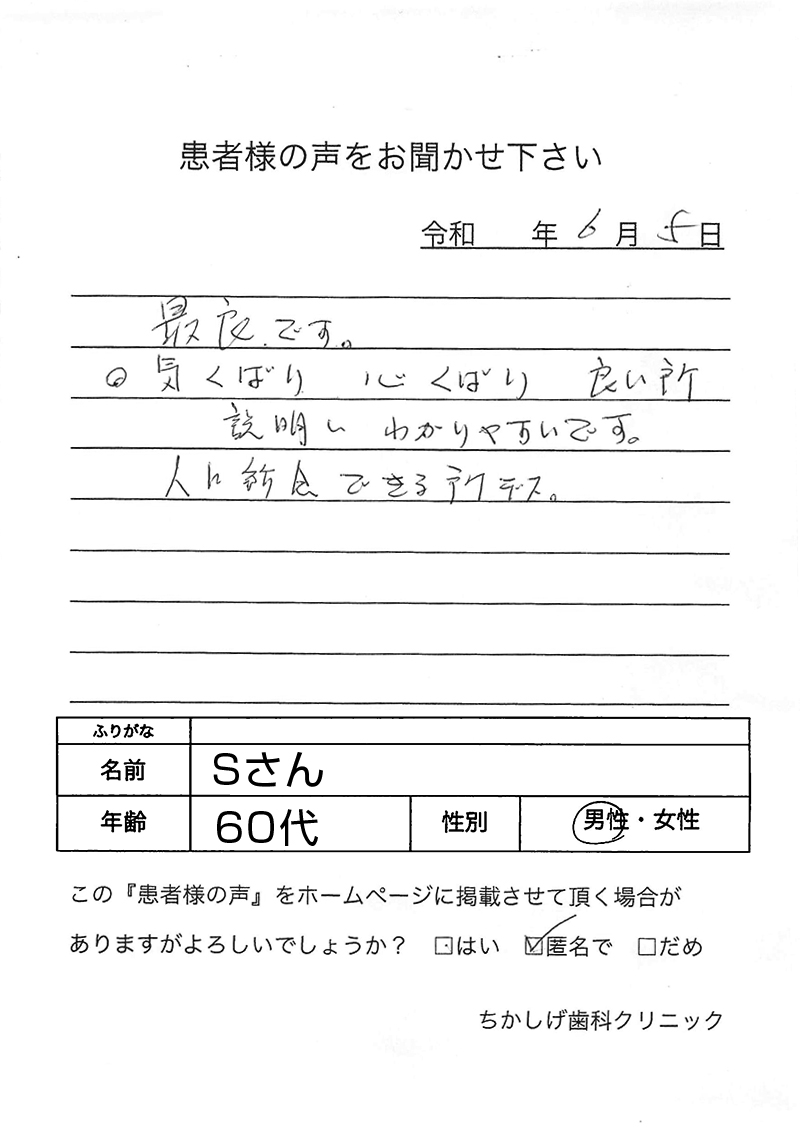 患者様の声をお聞かせ下さい
令和　　年 6 月 5 日
最良です。
◎ 気くばり　心くばり　良い所
説明い わかりやすいです。
人に紹介できる所デス。
ふりがな
名前 Sさん
年齢 60代 性別 男性・女性
この『患者様の声』をホームページに掲載させて頂く場合が
ありますがよろしいでしょうか？ □はい ☑匿名で □だめ
ちかしげ歯科クリニック